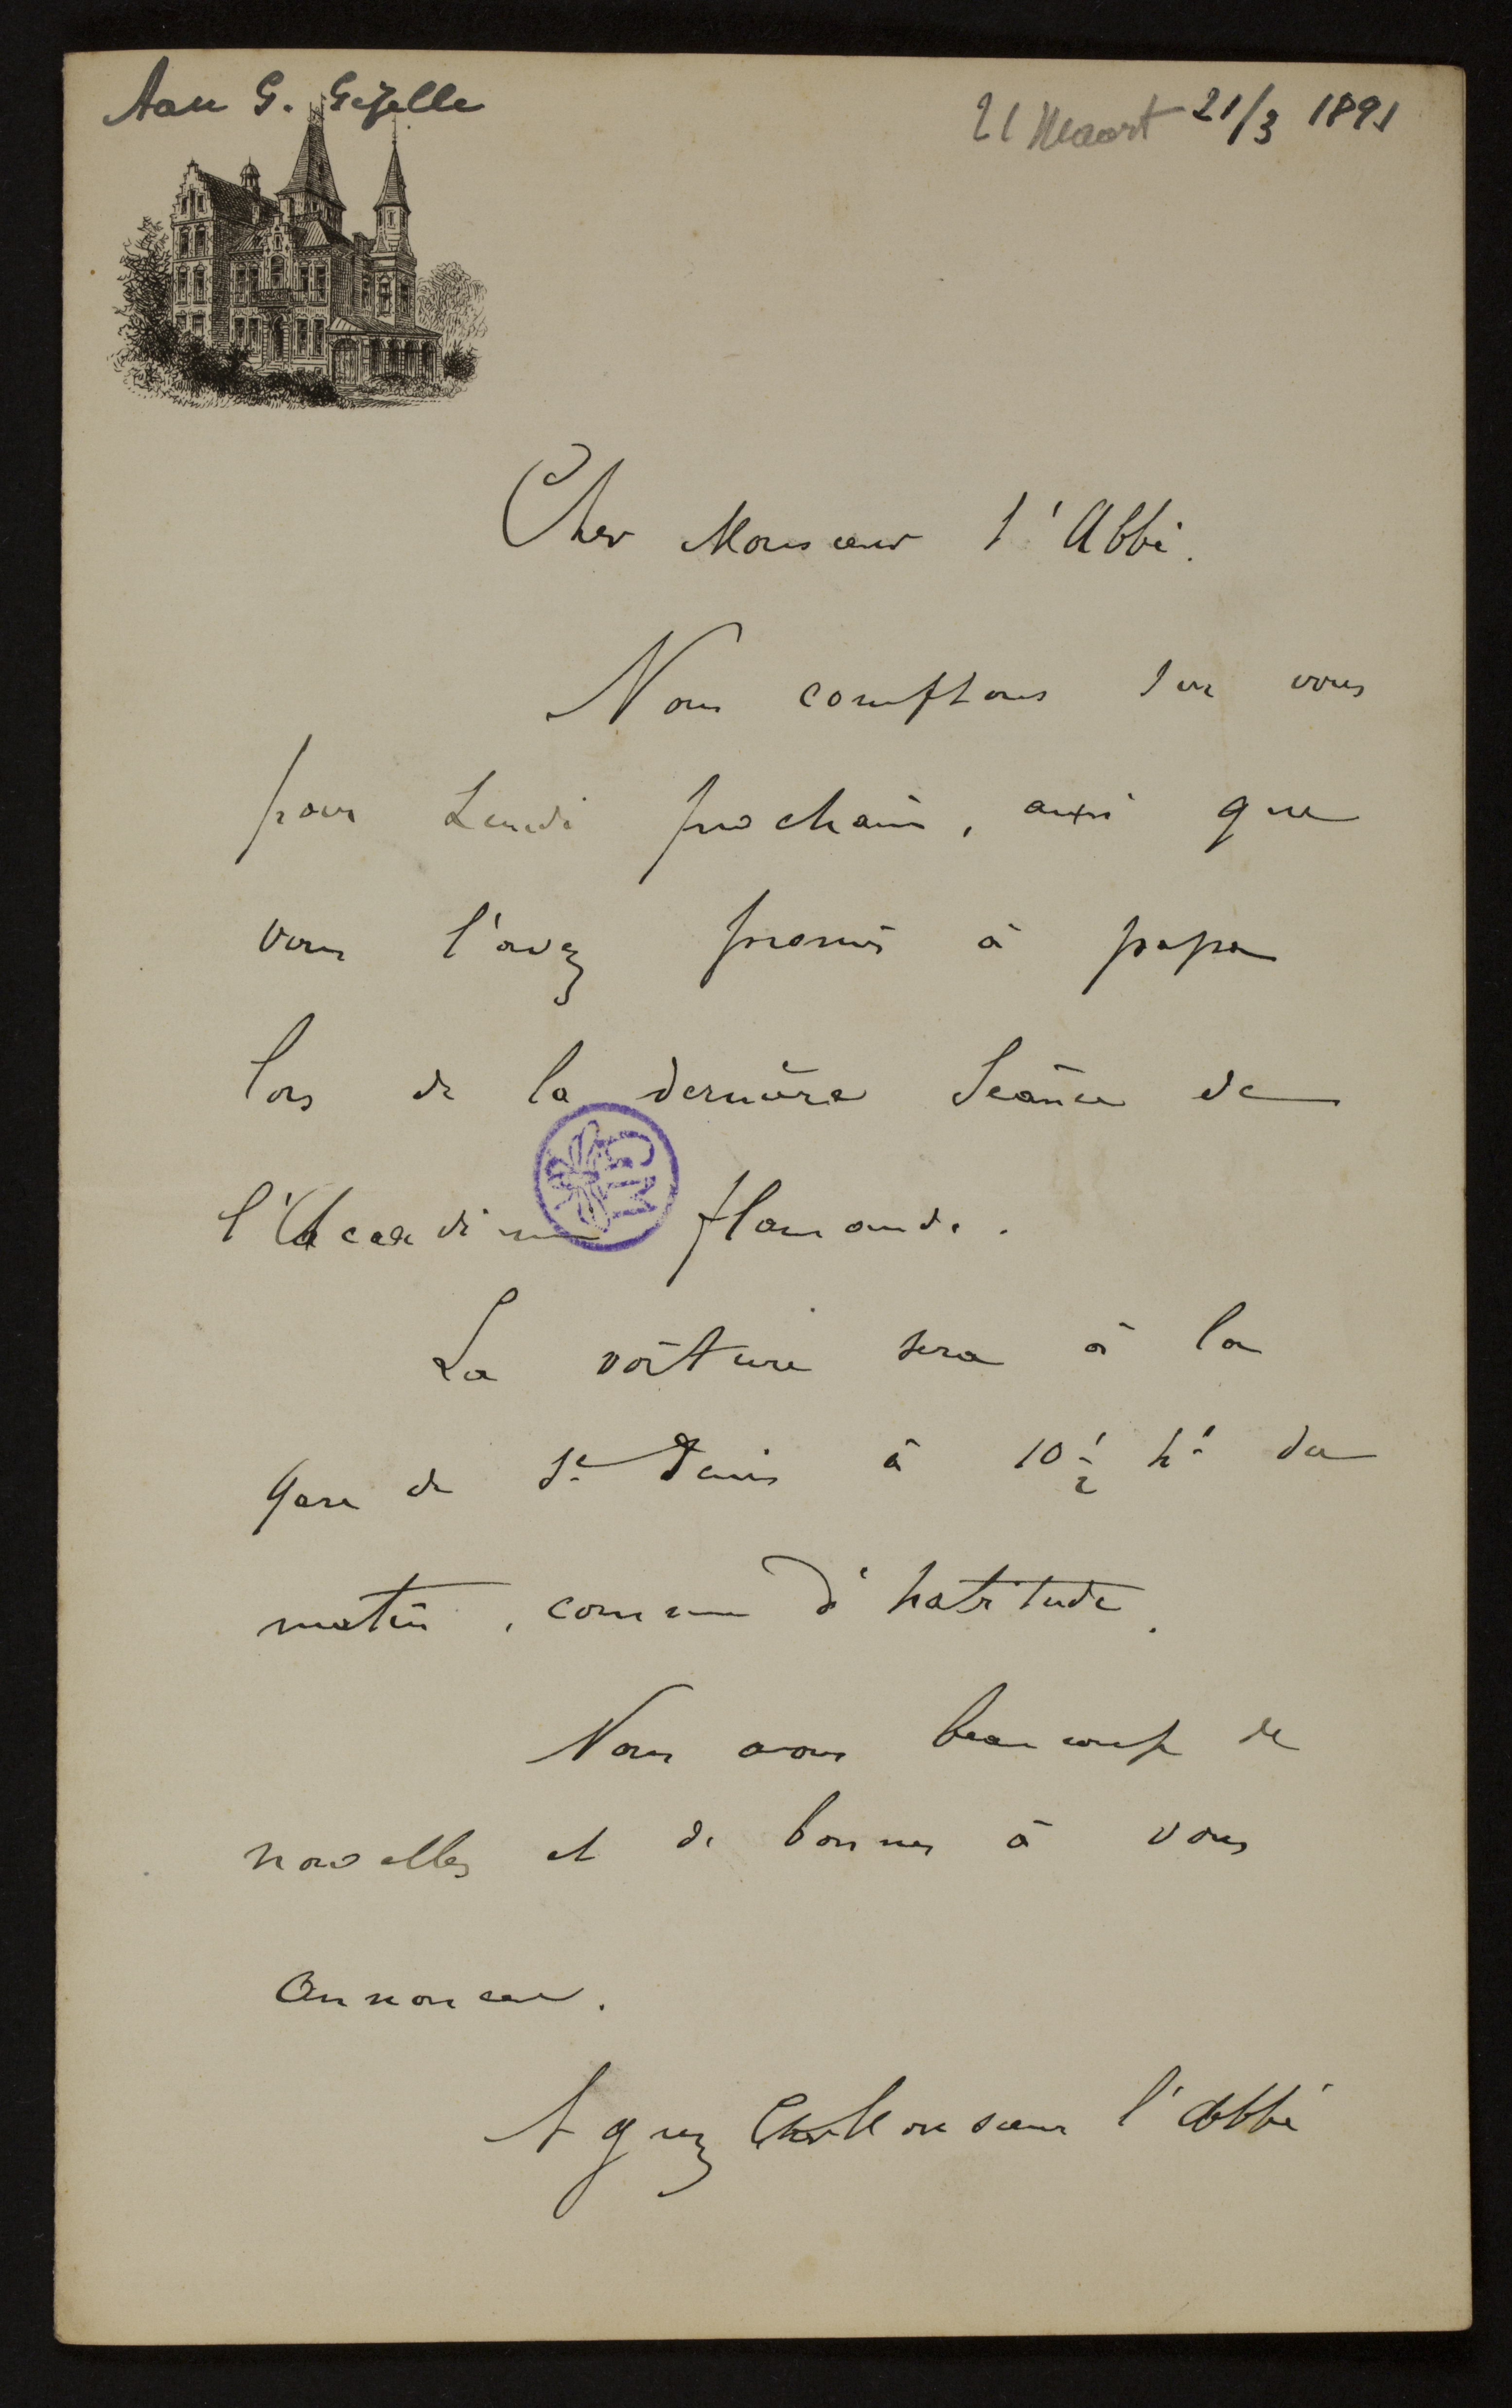 Aan G. Gezelle
21 Maart 21/3 1891
Cher Monsieur l'Abbé.
Nous comptons sur vous
pour Lundi prochain, ainsi que
vous l'avez promis à papa
lors de la dernière Séance de
l'Académie flamande.
La voiture sera à la
gare de St Denis à 10 1/2 hs du
matin, comme d'habitude.
Nous avons beaucoup de
nouvelles et de bonnes à vous
annoncer.
Agréez Cher Monsieur l'Abbé